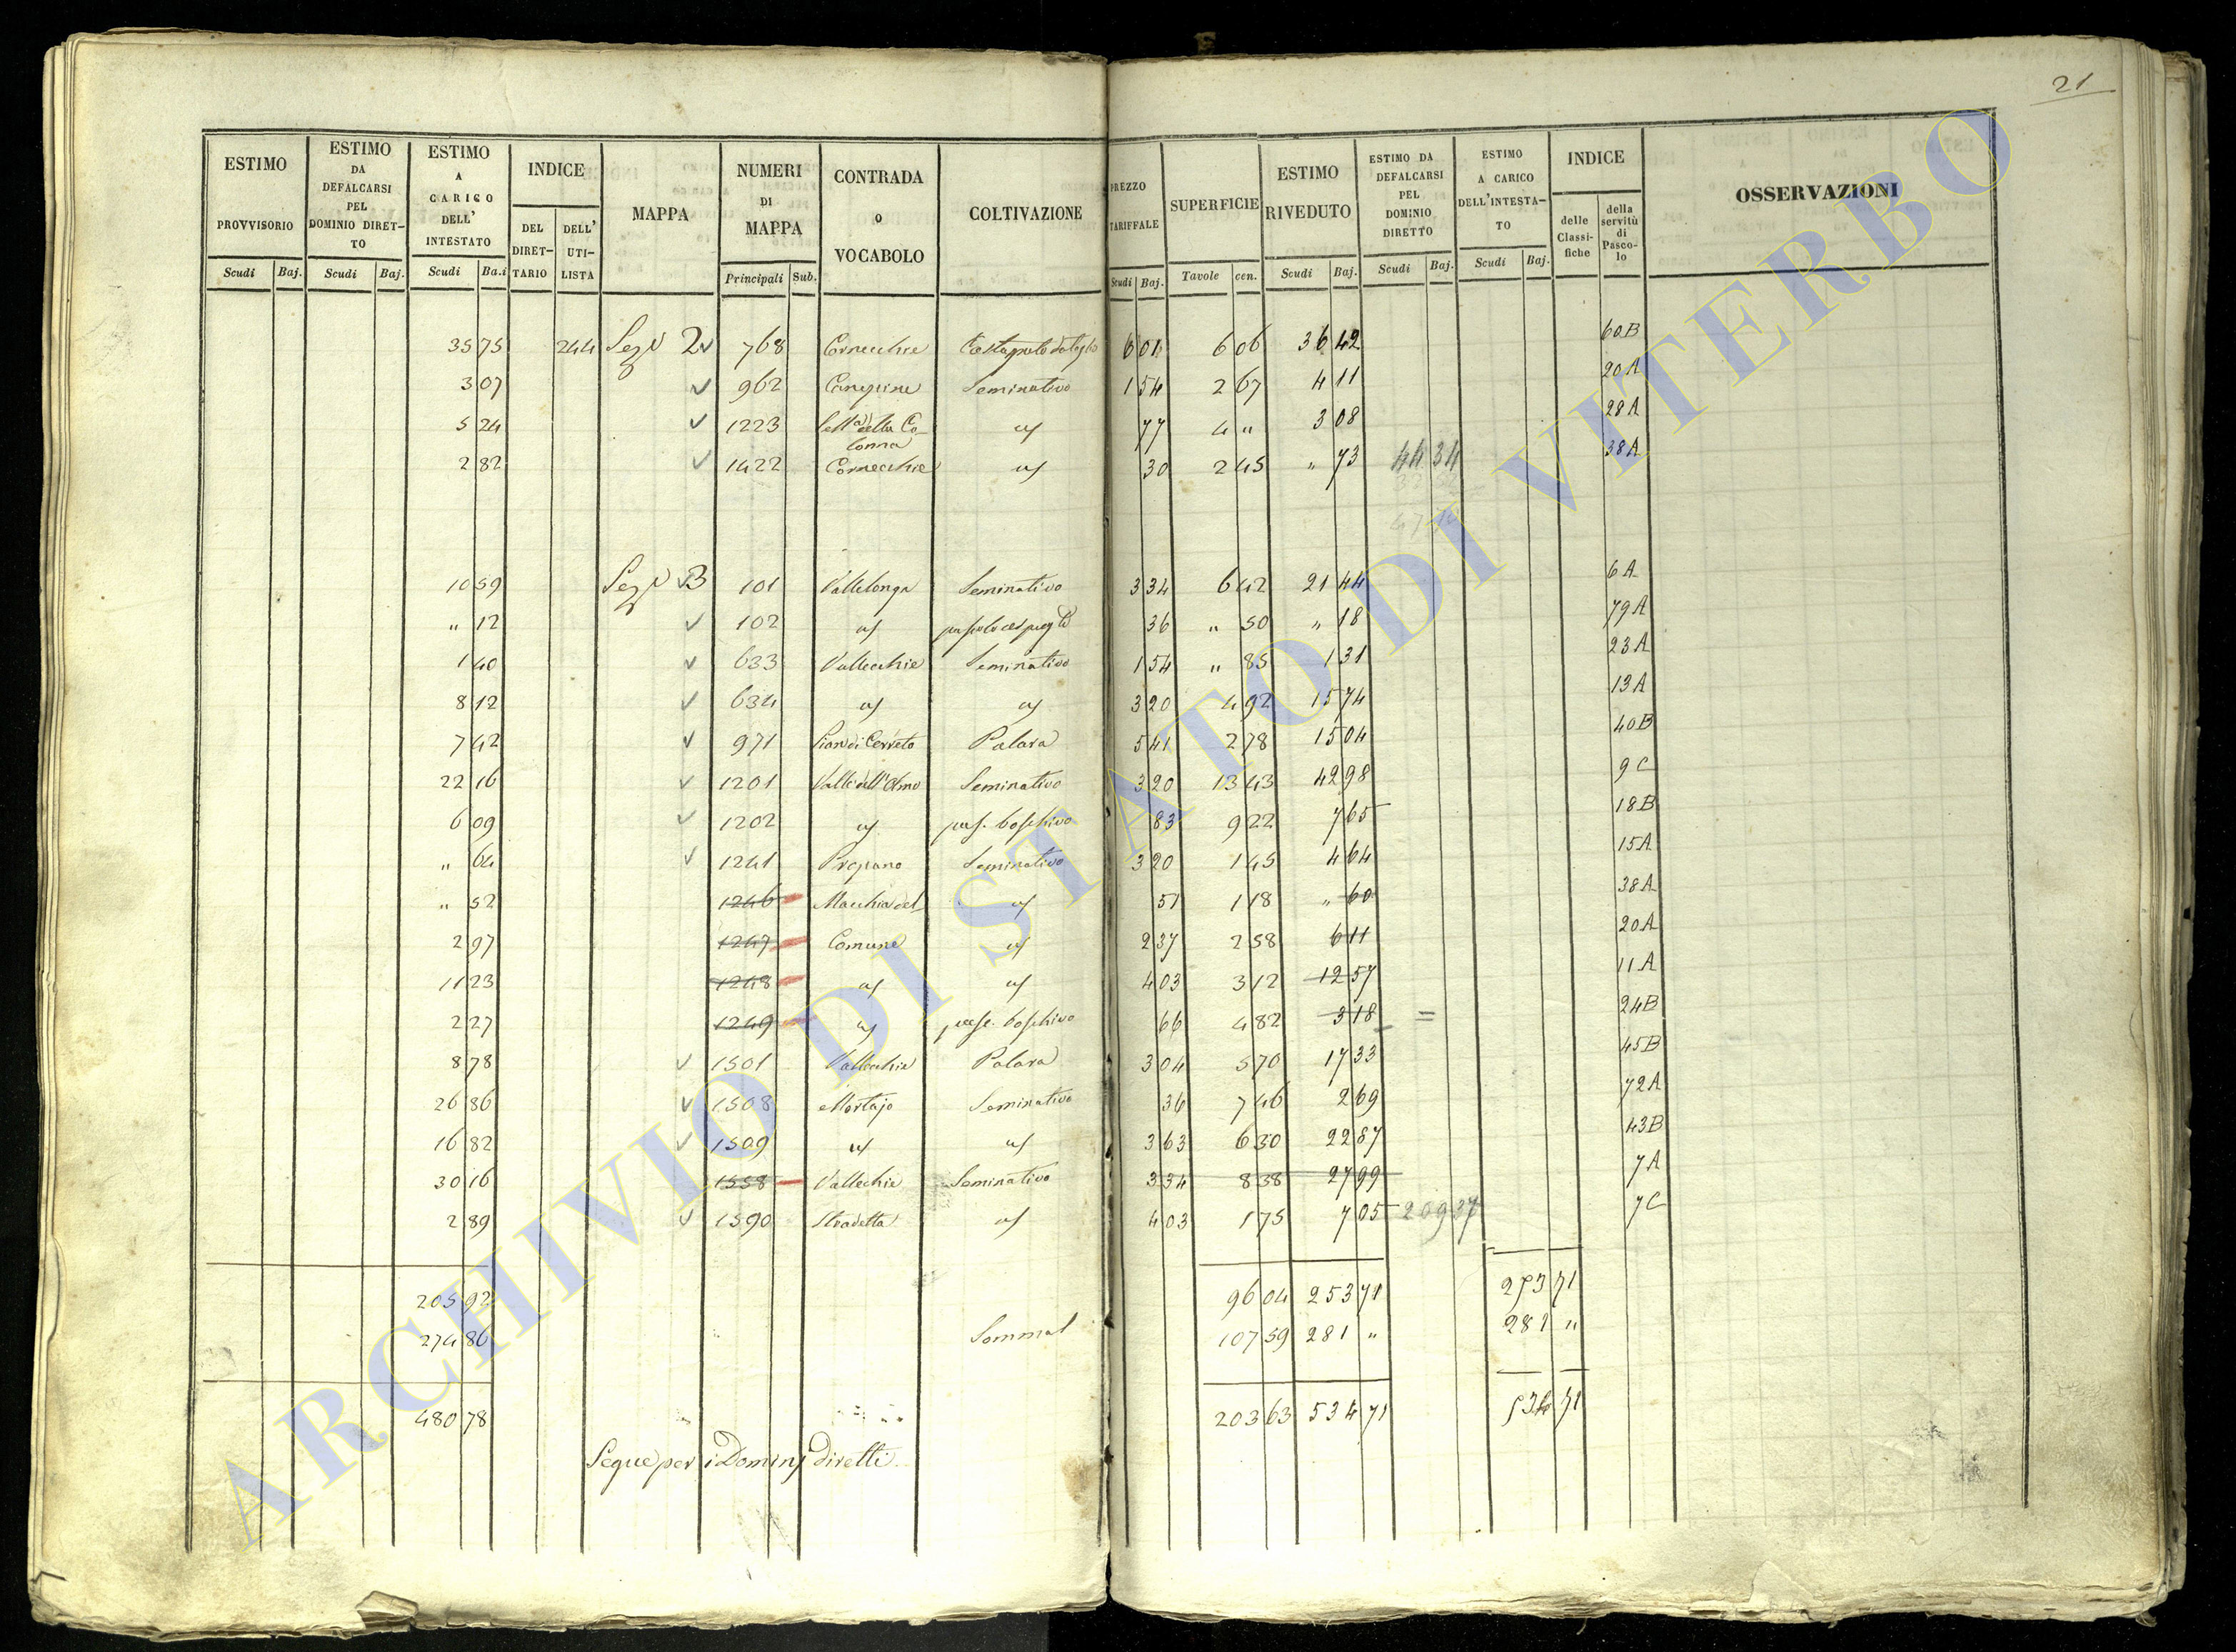 21
ESTIMO PROVVISORIO Scudi Baj.
ESTIMO DA DEFALCARSI PEL DOMINIO DIRETTO Scudi Baj.
ESTIMO A CARICO DELL' INTESTATO Scudi Ba.i
INDICE DEL DIRETTARIO DELL' UTILISTA
MAPPA
NUMERI DI MAPPA Principali Sub.
CONTRADA o VOCABOLO
COLTIVAZIONE
PREZZO TARIFFALE Scudi Baj.
SUPERFICIE Tavole cen.
ESTIMO RIVEDUTO Scudi Baj.
ESTIMO DA DEFALCARSI PEL DOMINIO DIRETTO Scudi Baj.
ESTIMO A CARICO DELL'INTESTATO Scudi Baj.
INDICE delle Classifiche della servitù di Pascolo
OSSERVAZIONI
35 75 244 Sez 2 768 Cornecchie 6 01 6 06 36 42 60B
3 07 962 Canepine Seminativo 1 54 2 67 4 11 20A
5 24 1223 della Colonna 77 4 " 3 08 28A
2 82 1422 Cornecchie 30 2 45 " 73 44 34 38A
10 59 Sez 3 101 Vallelonga Seminativo 3 34 6 42 21 44 6A
" 12 102 36 " 50 " 18 79A
1 40 633 Vallecchie Seminativo 1 54 " 85 1 31 23A
8 12 634 3 20 4 92 15 74 13A
7 42 971 Pian di Cerreto Palara 5 41 2 78 15 04 40B
22 16 1201 Valle dell'Olmo Seminativo 3 20 13 43 42 98 9C
6 09 1202 pas. boschivo 83 9 22 7 65 18B
" 64 1241 Propano Seminativo 3 20 1 45 4 64 15A
" 52 1246 Macchia del 51 1 18 " 60 38A
2 97 1247 Comune 2 37 2 58 6 11 20A
11 23 1248 4 03 3 12 12 57 11A
2 27 1249 pas. boschivo 66 4 82 3 18 = 24B
8 78 1501 Vallecchie Palara 3 04 5 70 17 33 45B
26 86 1508 Mortajo Seminativo 36 7 46 2 69 72A
16 82 1509 3 63 6 30 22 87 43B
30 16 1558 Vallechie Seminativo 3 34 8 38 27 99 7A
2 89 1590 Stradella 4 03 1 75 7 05 209 37 7C
205 92 96 04 253 71 253 71
274 86 107 59 281 " 281 "
480 78 203 63 534 71 534 71
Segue per i Dominj diretti.
ARCHIVIO DI STATO DI VITERBO